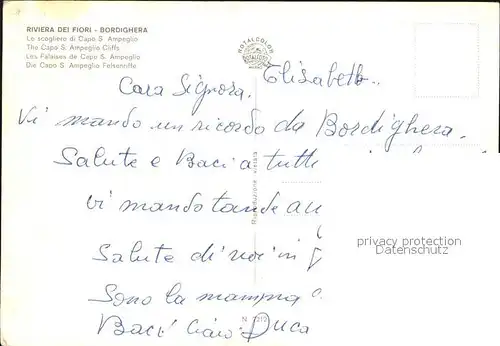 RIVIERA DEI FIORI - BORDIGHERA
Le scogliere di Capo S. Ampeglio
The Capo S. Ampeglio Cliffs
Les Falaises de Capo S. Ampeglio
Die Capo S. Ampeglio Felsenriffe
ROTALCOLOR
Cara Signora. Elisabetta..
Vi mando un ricordo da Bordighera.
Salute e Baci a tutti
vi mando tande au
Salute di noi in
Sono la mamma
Baci Ciao Duca
Riproduzione vietata
privacy protection
Datenschutz